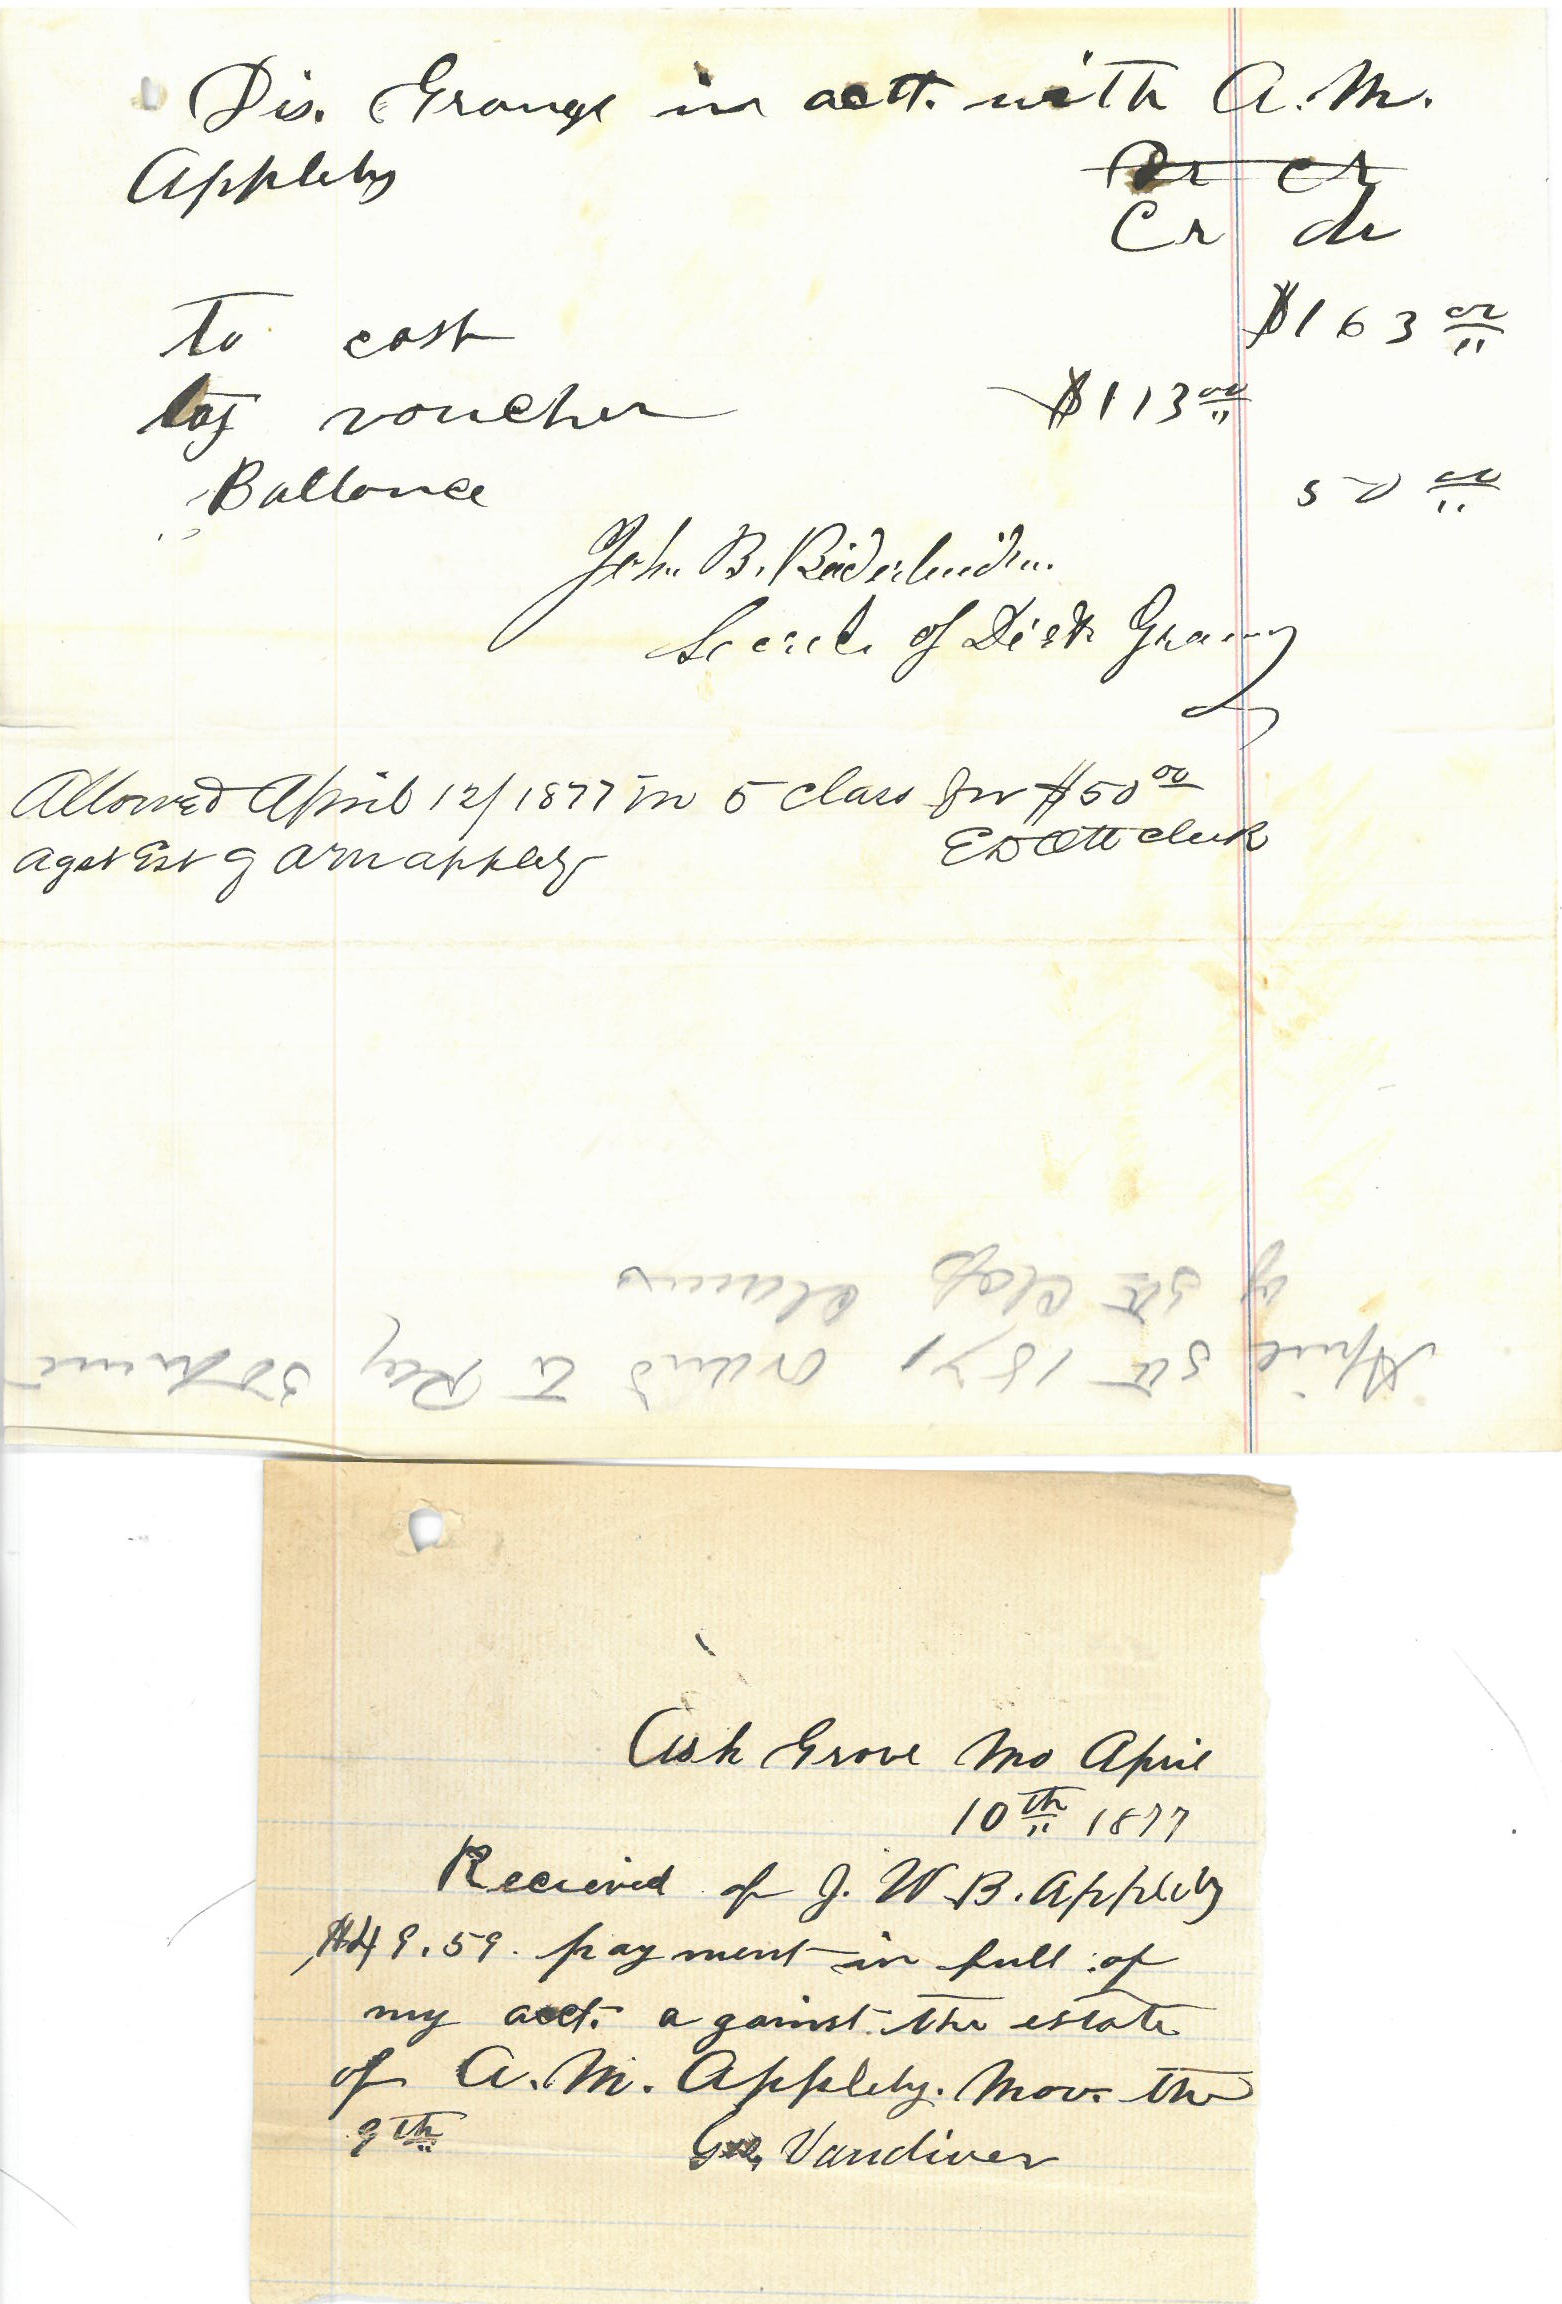 Dis. Grange in acct. with A. M.
Appleby
Dr Cr
Cr dr
To cash $163 00
by voucher $113 00
Ballance 50 00
John B.
of Distr Grang
Allowed April 12/1877 in 5 class for $50 00
agst Est of A M Appleby
E D Ott clerk
April 5th 1871 to Pay 30
of 5th Class Claims
Ash Grove Mo April
10th 1877
Recieved of J. W. B. Appleby
$49.59. payment in full of
my acct. against the estate
of A. M. Appleby. Nov. the
9th Vandiver